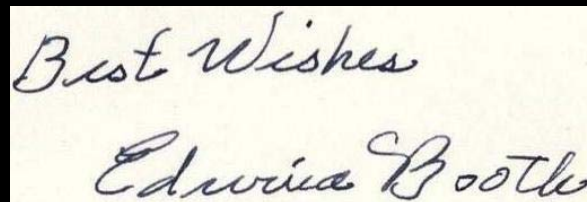 Best Wishes
Edwina Booth